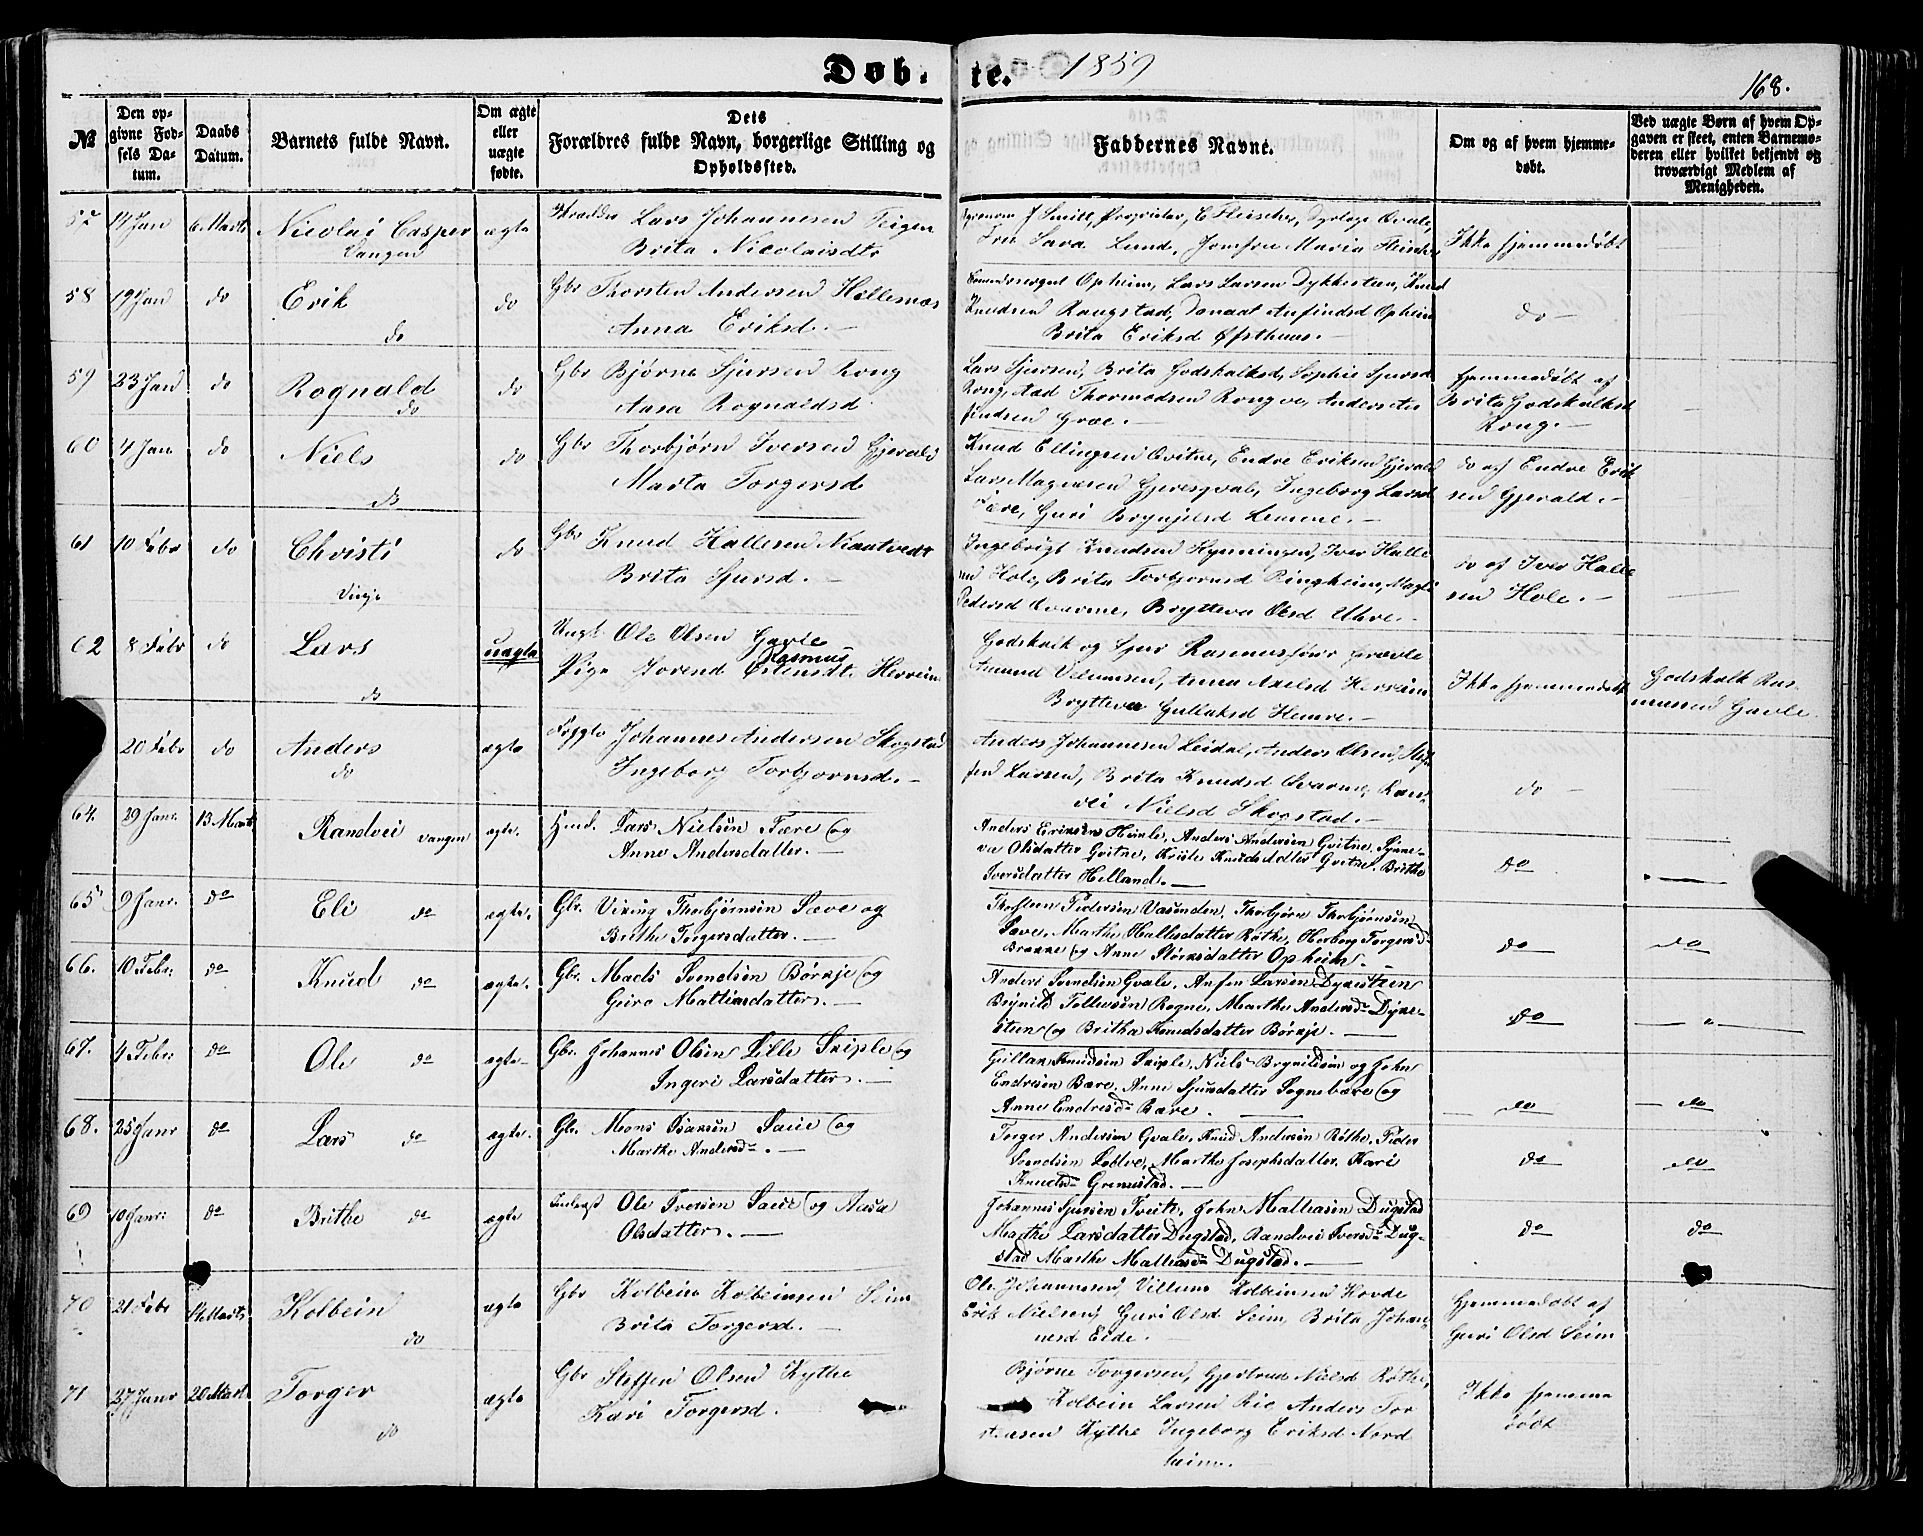 Døb. te. 1859
168.
№
Den op-
givne Fød-
sels Da-
tum.
Daabs
Datum.
Barnets fulde Navn.
Om ægte
eller
uægte
fødte.
Dets
Forældres fulde Navn, borgerlige Stilling og
Opholdssted.
Faddernes Navne.
Om og af hvem hjemme-
døbt.
Ved uægte Børn af hvem Op-
gaven er skeet, enten Barnemo-
deren eller hvilket bekjendt og
troværdigt Medlem af
Menigheden.
57 14 Jan 6 Marts Nicolai Casper ægte Lars Johannesen Teigen
Vangen
Brita Nicolaisdtr
Smitt, Proprietær, E Fleischer,
Fru Sara Lund, Jomfru Maria Fleischer
Ikke hjemmedøbt
58 19 Jan do Erik do Gbr Thorsten Andersen Hellesnæs
do
Anna Eriksd. –
Opheim, Lars Larsen Dykkesteen, Knud
Knudsen Rongstad, Anfindsd Opheim
Brita Eriksd Øfsthuus. –
do –
59 23 Jan do Rognald do Gbr Bjørne Sjursen Rong
do
Aasa Rognaldsd
Lars Sjursen, Brita Godskalksd, Sophie Sjursd
Rong, Aad Thormodsen Rongve, Anders
findsen Græe. –
hjemmedøbt af
Brita Godskalksd
Rong. –
60 4 Jan do Niels do Gbr Thorbjørn Iversen Gjerald
do
Marta Torgersd
Knud Ellingsen Qvitne, Endre Eriksen Gjerald
Lars Magnesen Gjeresqval, Ingeborg Larsd
Fære, Guri Brynjelsd Lemme. –
do af Endre Erik
sen Gjerald. –
61 10 Febr do Christi do Gbr Knud Hallesen
Vinje
Brita Sjursd. –
Ingebrigt Knudsen Iver Halle
sen Hole, Brita Torbjornsd Ringheim,
Pedersd Brytteva Olsd Uhre. –
do af Iver Halle
sen Hole. –
62 8 Febr do Lars uægte Ungk. Ole Olsen Gavle
Rasmus
do
Pige Jorend Herreim
Godskalk og Sjur
Amund Anna Axelsd Herreim
Brytteva Gullaksd Hemre. –
Ikke hjemmedøbt
Godskalk Ras-
mussen Gavle.
20 Febr do Anders ægte Johannes Andersen Skogstad
do
Ingeborg Torbjornsd. –
Anders Johannesen Leidal, Anders Olsen,
Larsen, Brita Knudsd Ran-
vei Nielsd Skogstad. –
do –
64. 29 Janr. 13 Marts Randvei Vangen ægte. Hmd. Lars Nielsen Fære og
Anne Andersdatter. –
Anders Eriksen Himle, Anders Andersen Gvitne, Synne-
va Olsdatter Gvitne, Kristi Knudsdatter Gvitne, Brithe
Iversdatter Helland. –
do
65 9 Janr. do Eli do ægte. Gbr. Viking Thorbjørnsen Sæve og
Brithe Torgersdatter. –
Thorsteen Pedersen Vasenden, Thorbjørn Thorbjørnsen
Sæve, Marthe Hallesdatter Røthe, Herborg Torgersd
Brække og Anne Størksdatter Opheim. –
do do
66. 10 Febr. do Knud do ægte. Gbr. Mads Svendsen Børkje og
Guro Mathiasdatter. –
Anders Svendsen Gvale, Anfen Larsen Dykesteen
Brynild Tollevsen Rogne, Marthe Andersd Dyke-
steen og Britha Knudsdatter Børkje. –
do
67. 4 Febr. do Ole do ægte. Gbr. Johannes Olsen Lille Skiple og
Ingeri Larsdatter. –
Gullak Knudsen Skiple, Niels Brynildsen og John
Endresen Bære, Anne Sjursdatter Sognebære og
Anne Endresd Bære.
do do
68. 25 Janr do Lars do ægte. Gbr. Mons Isaksen Saue og
Marthe Andersd. –
Torger Andersen Gvale, Knud Andersen Røthe, Peder
Svendsen Lødve, Marthe Josephsdatter, Kari
Knudsd Grimestad. –
do do
69 10 Janr: do Brithe do ægte Ole Iversen Saue og Aasa
Olsdatter. –
Johannes Sjursen Tveite, John Mathiasen Dugstad
Marthe Larsdatter Dugstad, Randvei Iversd Dug-
stad Marthe Mathiasd Dugstad. –
do do
70 21 Febr 14 Marts Kolbein ægte Gbr Kolbein Kolbeinsen Seim
do
Brita Torgersd. –
Ole Johannesen, Villum Kolbeinsen Hovde
Erik Nielsen, Guri Olsd Seim, Brita Johan-
nesd Eide. –
Hjemmedøbt af
Guri Olsd Seim
71 27 Janr 20 Marts Torger ægte Gbr Steffen Olsen Kythe
do
Kari Torgersd.
Bjørne Torgersen, Gjertrud Nielsd Røthe,
Kolbein Larsen Rie Anders Tor
stensen Kythe Ingeborg Eriksd Nord
heim. –
Ikke hjemme
døbt